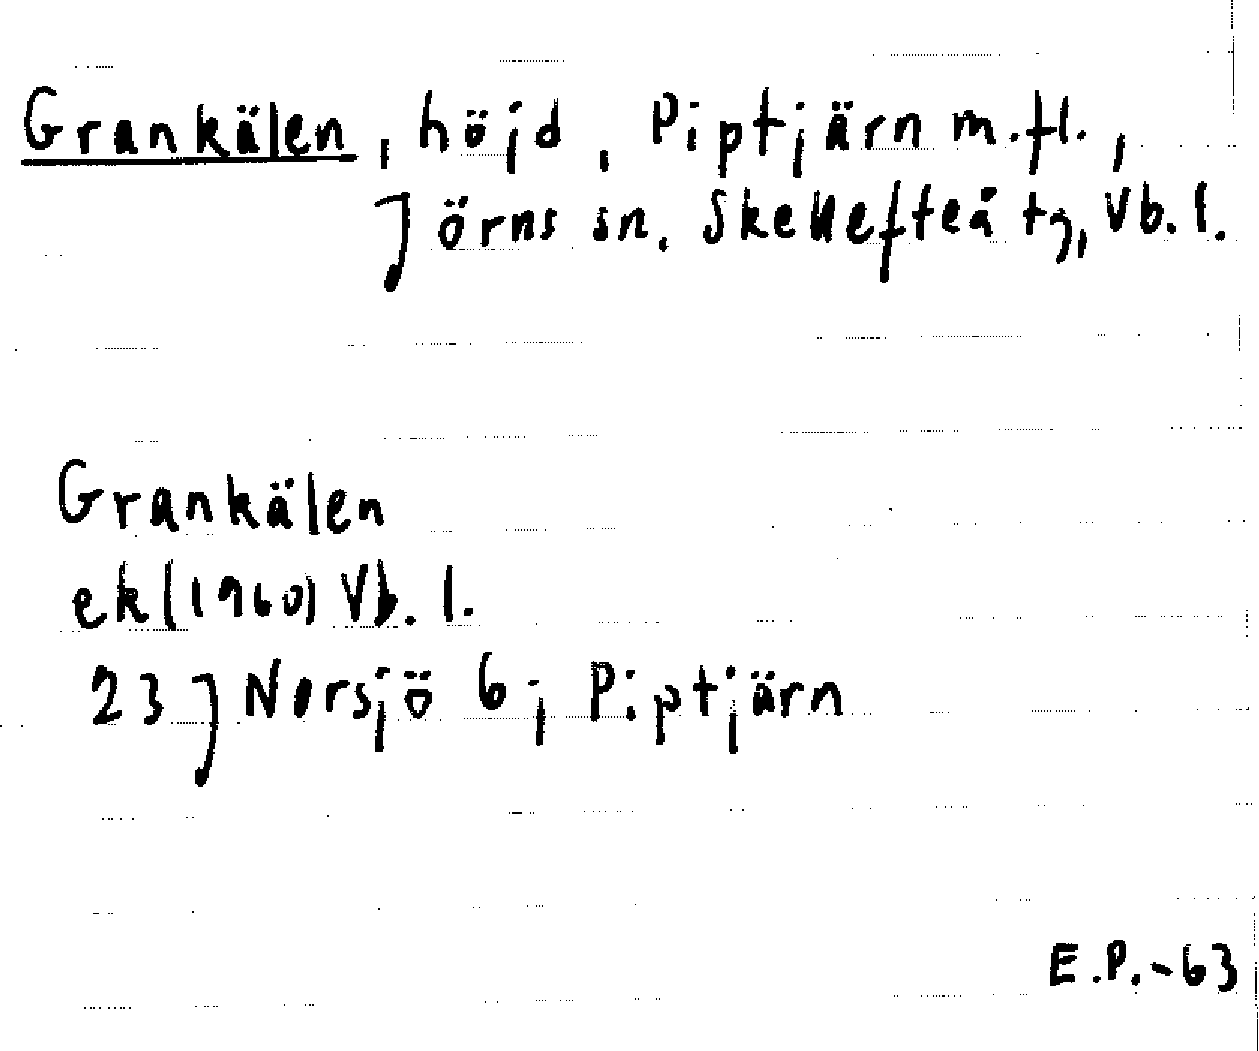 Grankälen, höjd, Piptjärn m.fl.,
Jörns sn. Skellefteå tg, Vb. l.
Grankälen
ek (1960) Vb. l.
23 J Norsjö 6 j Piptjärn
E.P.-63